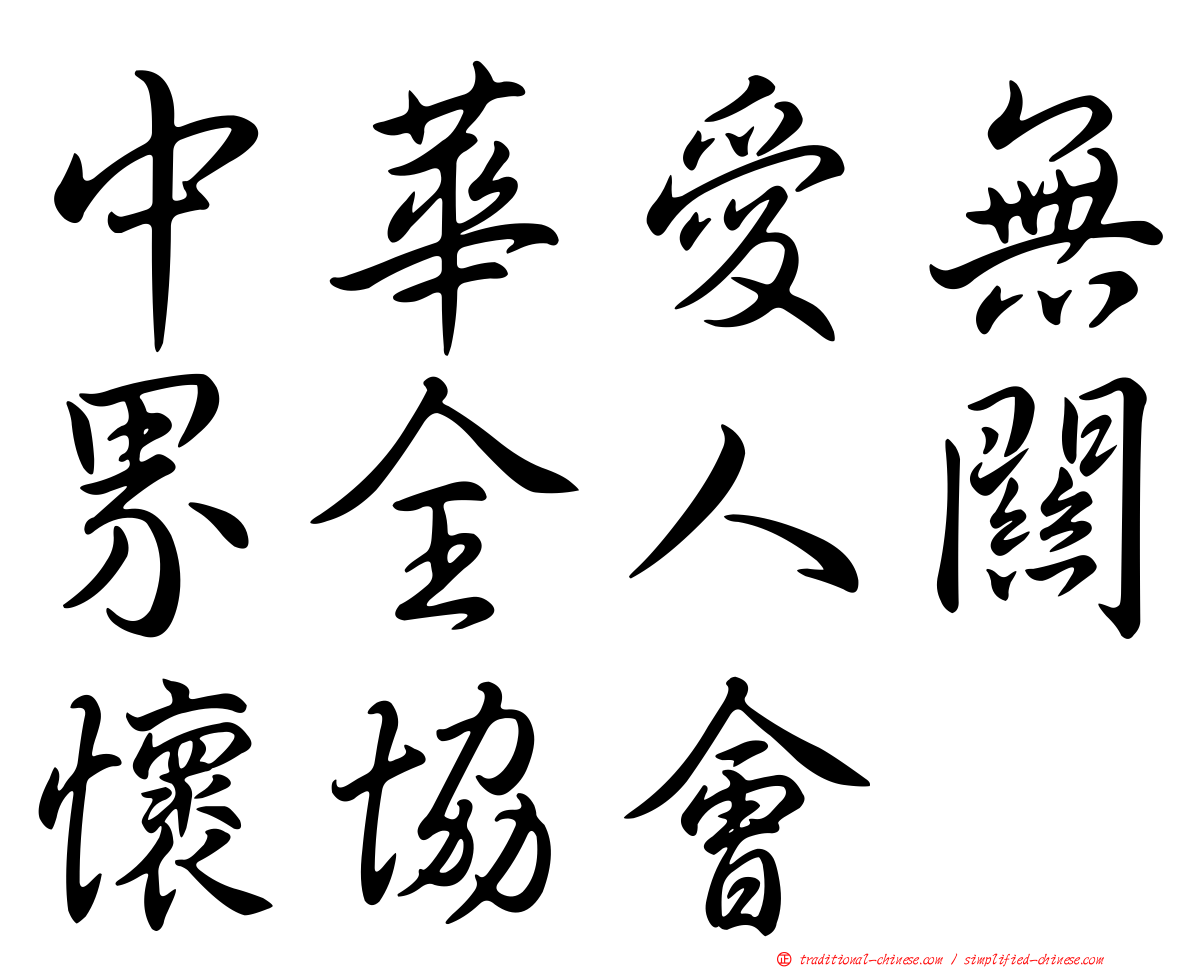 中華愛無
界全人關
懷協會
正 traditional-chinese.com / simplified-chinese.com